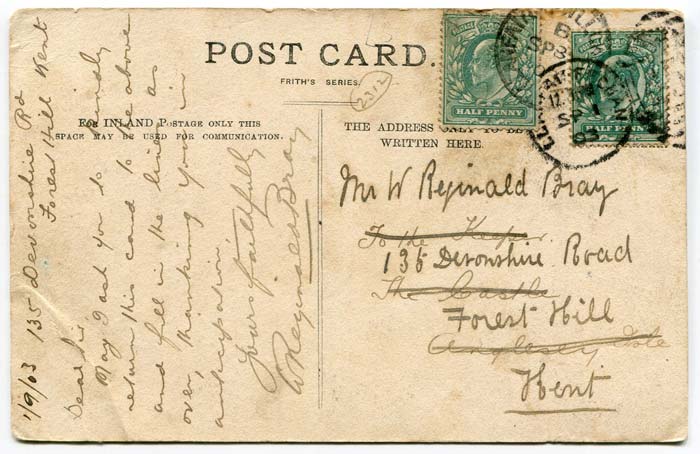 POST CARD.
FRITH'S SERIES.
2312
For INLAND POSTAGE ONLY THIS
SPACE MAY BE USED FOR COMMUNICATION.
THE ADDRESS ONLY TO BE
WRITTEN HERE.
HALF PENNY
HALF PENNY
1/9/03 135 Devonshire Rd
Forest Hill Kent
Dear Sir
May I ask you to kindly
return this card to the above
and fill in the line as
over, thanking you in
anticipation,
Yours faithfully
W Reginald Bray
Mr W Reginald Bray
To the Keeper
135 Devonshire Road
The Castle
Forest Hill
Anglesey Isle
Kent